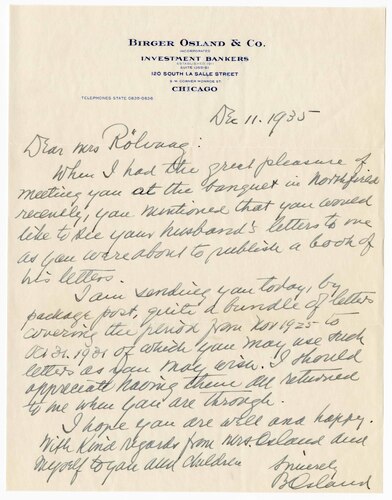 BIRGER OSLAND & CO.
INCORPORATED
INVESTMENT BANKERS
ESTABLISHED 1911
120 SOUTH LA SALLE STREET
S.W. CORNER MONROE ST.
CHICAGO
TELEPHONES STATE 0835-0836
Dec 11. 1935
Dear Mrs Rölvaag:
When I had the great pleasure of
meeting you at the banquet in Northfield
recently, you mentioned that you would
like to see your husband's letters to me
as you were about to publish a book of
his letters.
I am sending you today, by
package post, quite a bundle of letters
covering the period from Nov 1925 to
Oct 31. 1931 of which you may use such
letters as you may wish. I should
appreciate having them all returned
to me when you are through.
I hope you are well and happy.
With kind regards from Mrs. Osland and
myself to you and children
Sincerely
B Osland